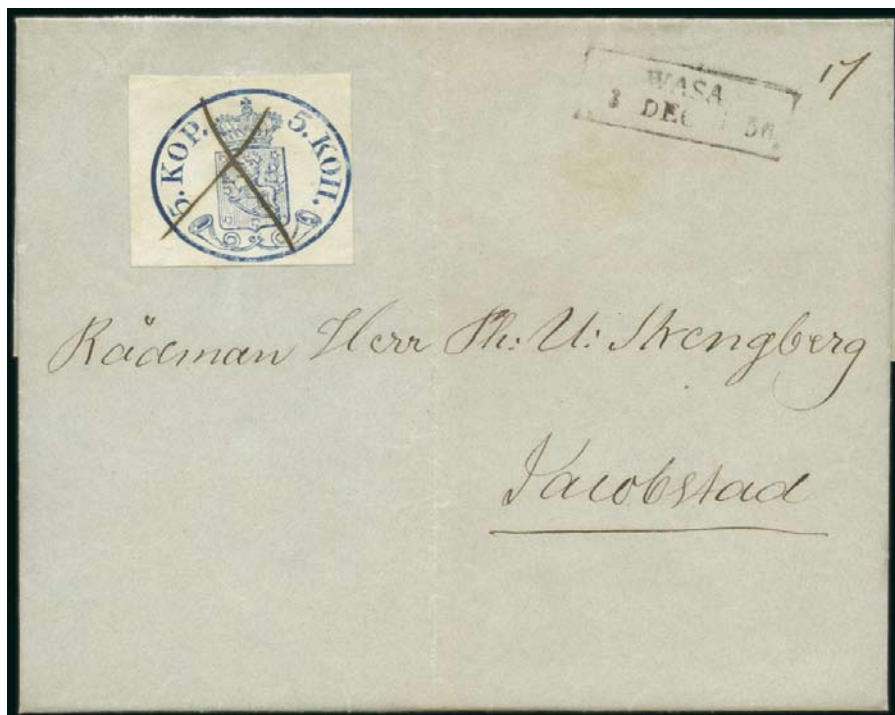 5. KOP. 5. КОП.
WASA
3 DEC 56.
17
Rådman Herr Ph: U: Strengberg
Jacobstad